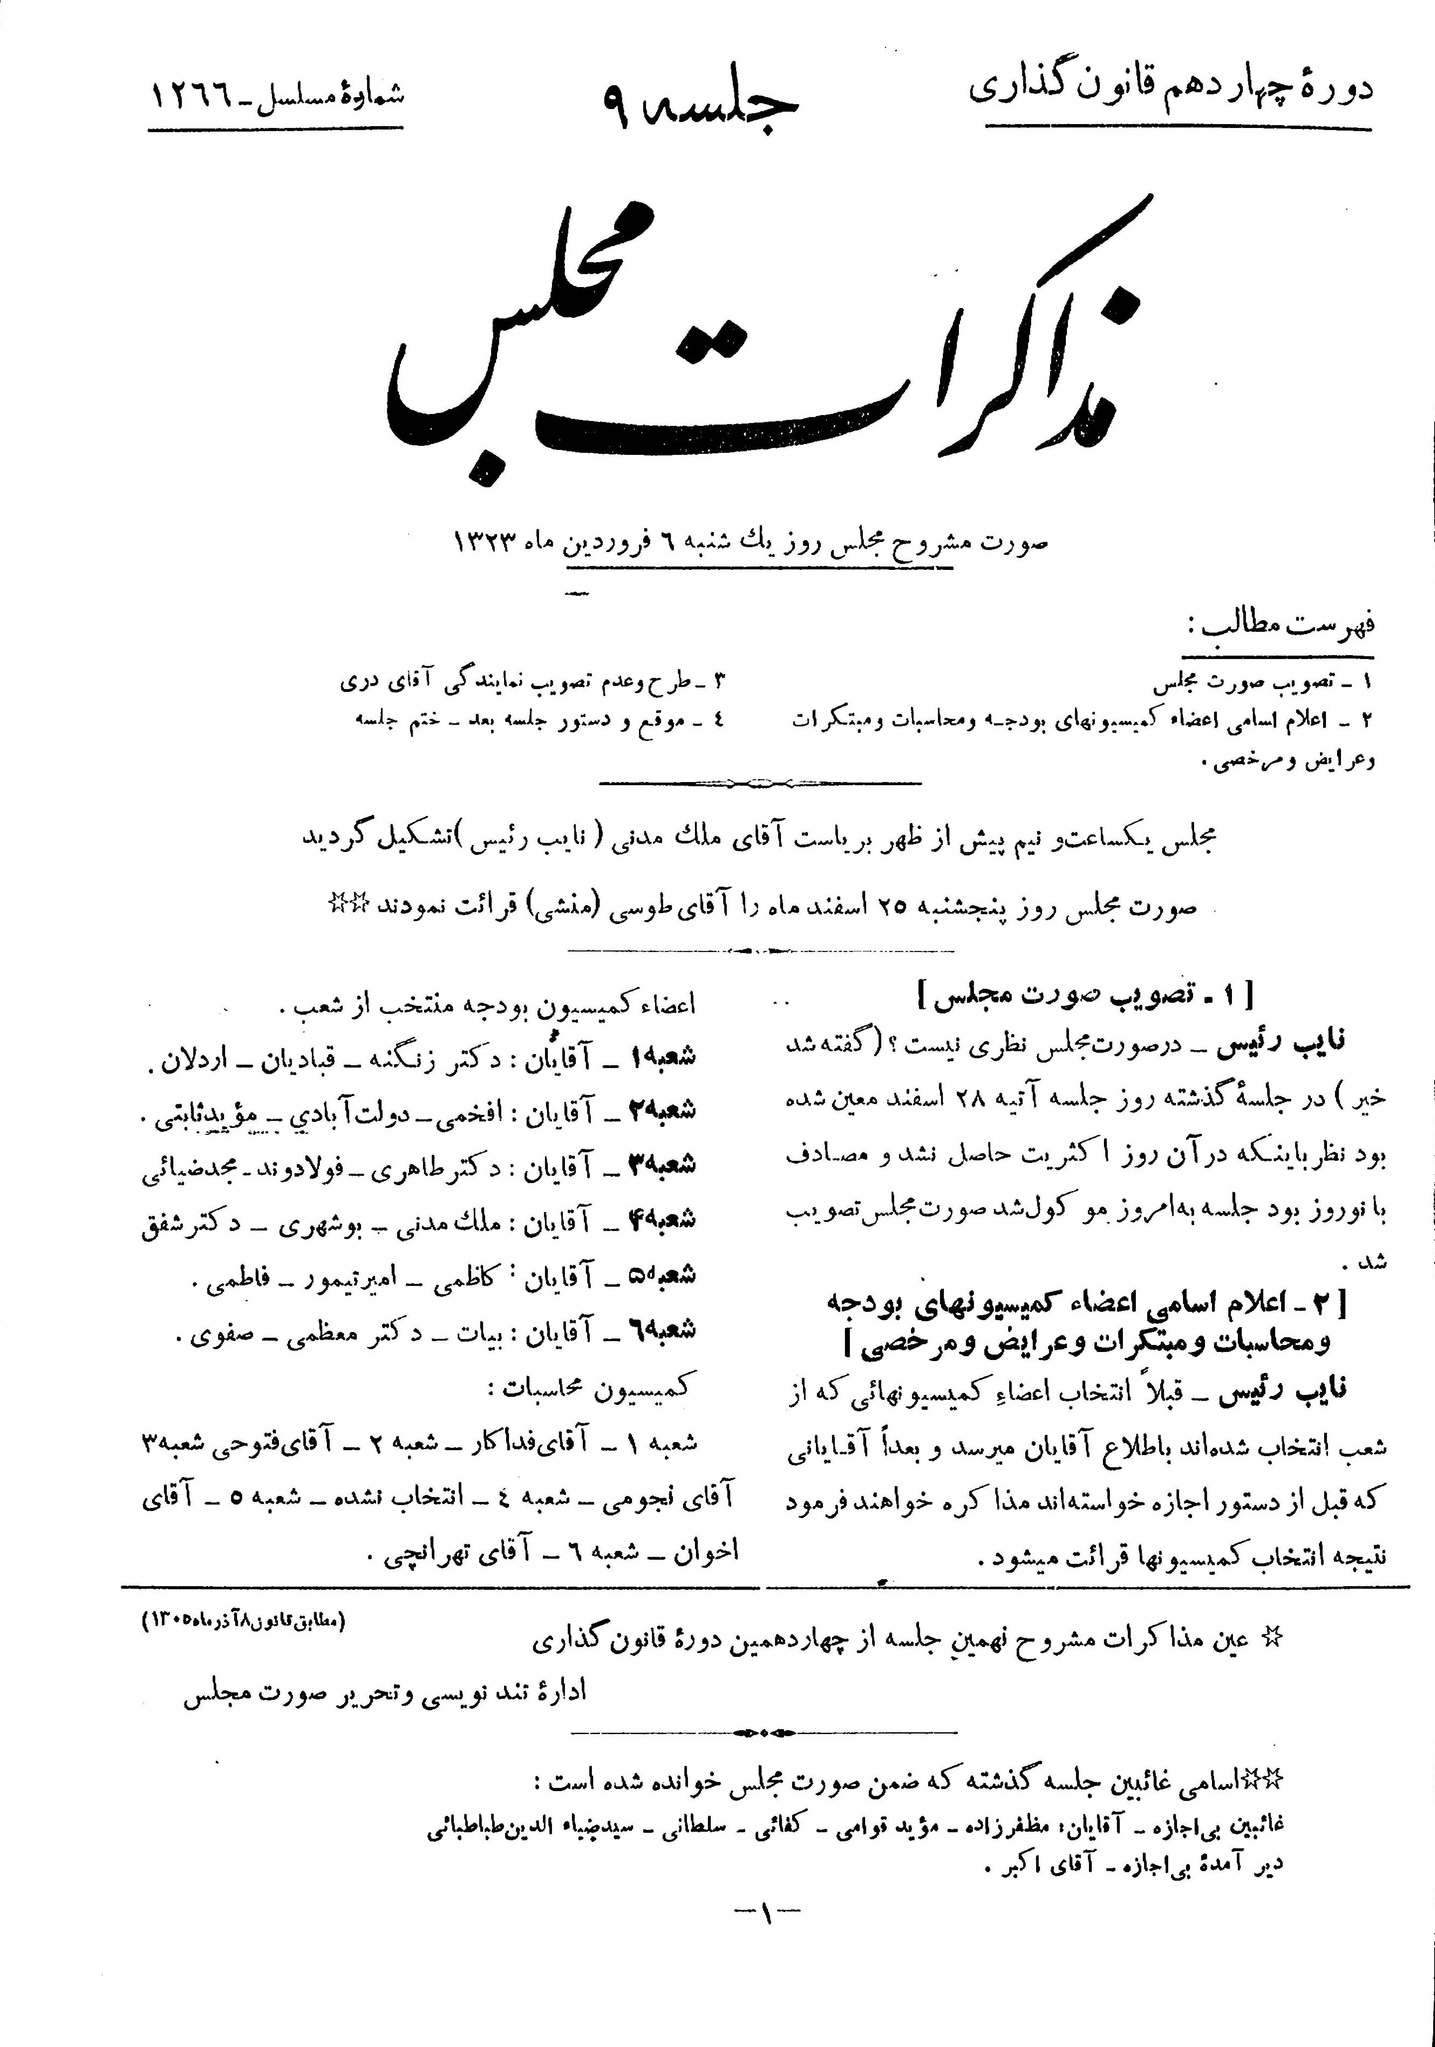 دورهٔ چهاردهم قانون گذاری
جلسه ۹
شمارهٔ مسلسل ـ ۱۲۶۶
مذاکرات مجلس
صورت مشروح مجلس روز یك شنبه ۶ فروردین ماه ۱۳۲۳
فهرست مطالب :
۱ ـ تصویب صورت مجلس
۲ ـ اعلام اسامی اعضاء کمیسیونهای بودجه ومحاسبات ومبتکرات
وعرایض ومرخصی .
۳ ـ طرح وعدم تصویب نمایندگی آقای دری
٤ ـ موقع و دستور جلسه بعد ـ ختم جلسه
مجلس یکساعت و نیم پیش از ظهر بریاست آقای ملك مدنی ( نایب رئیس ) تشکیل گردید
صورت مجلس روز پنجشنبه ۲۵ اسفند ماه را آقای طوسی (منشی) قرائت نمودند ☆☆
[ ۱ ـ تصویب صورت مجلس ]
نایب رئیس ـ درصورت مجلس نظری نیست ؟ ( گفته شد
خیر ) در جلسهٔ گذشته روز جلسه آتیه ۲۸ اسفند معین شده
بود نظر باینکه در آن روز اکثریت حاصل نشد و مصادف
با نوروز بود جلسه به امروز موکول شد صورت مجلس تصویب
شد .
[ ۲ ـ اعلام اسامی اعضاء کمیسیونهای بودجه
ومحاسبات ومبتکرات وعرایض ومرخصی ]
نایب رئیس ـ قبلاً انتخاب اعضاءِ کمیسیونهائی که از
شعب انتخاب شده‌اند باطلاع آقایان میرسد و بعداً آقایانی
که قبل از دستور اجازه خواسته‌اند مذاکره خواهند فرمود
نتیجه انتخاب کمیسیونها قرائت میشود .
اعضاء کمیسیون بودجه منتخب از شعب .
شعبه ۱ ـ آقایان : دکتر زنگنه ـ قبادیان ـ اردلان .
شعبه ۲ ـ آقایان : افخمی ـ دولت آبادي ـ مؤید ثابتی .
شعبه ۳ ـ آقایان : دکتر طاهری ـ فولادوند ـ مجد ضیائی
شعبه ۴ ـ آقایان : ملك مدنی ـ بوشهری ـ دکتر شفق
شعبه ۵ ـ آقایان : کاظمی ـ امیر تیمور ـ فاطمی .
شعبه ۶ ـ آقایان : بیات ـ دکتر معظمی ـ صفوی .
کمیسیون محاسبات :
شعبه ۱ ـ آقای فداکار ـ شعبه ۲ ـ آقای فتوحی شعبه ۳
آقای نجومی ـ شعبه ٤ ـ انتخاب نشده ـ شعبه ۵ ـ آقای
اخوان ـ شعبه ۶ ـ آقای تهرانچی .
☆ عین مذاکرات مشروح نهمین جلسه از چهاردهمین دورهٔ قانون گذاری
(مطابق قانون ۸ آذر ماه ۱۳۰۵)
ادارهٔ تند نویسی و تحریر صورت مجلس
☆☆ اسامی غائبین جلسه گذشته که ضمن صورت مجلس خوانده شده است :
غائبین بی‌اجازه ـ آقایان : مظفرزاده ـ مؤید قوامی ـ کفائی ـ سلطانی ـ سید ضیاء الدین طباطبائی
دیر آمدهٔ بی‌اجازه ـ آقای اکبر .
ـ۱ـ